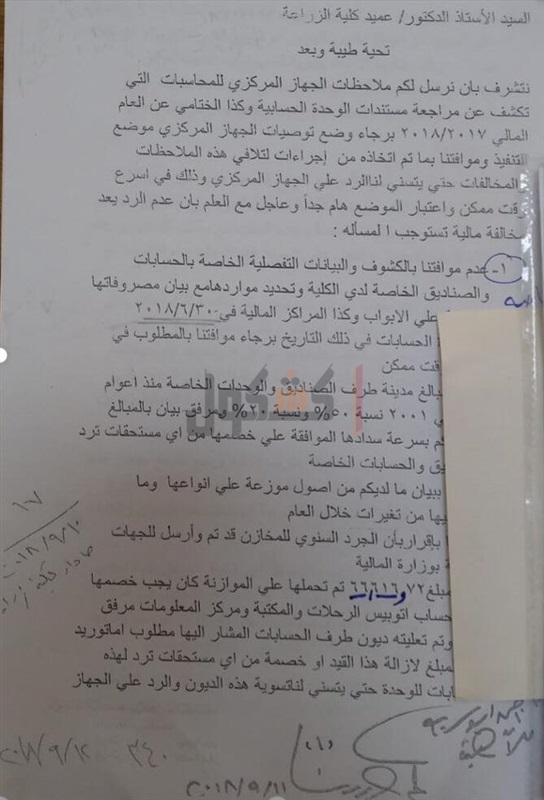 السيد الأستاذ الدكتور/ عميد كلية الزراعة
تحية طيبة وبعد
نتشرف بان نرسل لكم ملاحظات الجهاز المركزي للمحاسبات التي
تكشف عن مراجعة مستندات الوحدة الحسابية وكذا الختامي عن العام
المالي ٢٠١٨/٢٠١٧ برجاء وضع توصيات الجهاز المركزي موضع
التنفيذ وموافتنا بما تم اتخاذه من إجراءات لتلافي هذه الملاحظات
المخالفات حتي يتسني لناالرد علي الجهاز المركزي وذلك في اسرع
وقت ممكن واعتبار الموضع هام جداً وعاجل مع العلم بان عدم الرد يعد
مخالفة مالية تستوجب ا لمسأله :
١- عدم موافتنا بالكشوف والبيانات التفصلية الخاصة بالحسابات
والصناديق الخاصة لدي الكلية وتحديد مواردهامع بيان مصروفاتها
علي الابواب وكذا المراكز المالية في ٢٠١٨/٦/٣٠
الحسابات في ذلك التاريخ برجاء موافتنا بالمطلوب في
قت ممكن
بالغ مدينة طرف الصناديق والوحدات الخاصة منذ اعوام
٢٠٠١ نسبة ٥٠% ونسبة ٢٠% ومرفق بيان بالمبالغ
م بسرعة سدادها الموافقة علي خصمها من اي مستحقات ترد
يق والحسابات الخاصة
ببيان ما لديكم من اصول موزعة علي انواعها وما
يها من تغيرات خلال العام
ا بإقراربأن الجرد السنوي للمخازن قد تم وأرسل للجهات
ة بوزارة المالية
مبلغ ٦٦٦١٦و٧٢ تم تحملها علي الموازنة كان يجب خصمها
حساب اتوبيس الرحلات والمكتبة ومركز المعلومات مرفق
وتم تعليته ديون طرف الحسابات المشار اليها مطلوب اماتوريد
مبلغ لازالة هذا القيد او خصمة من اي مستحقات ترد لهذه
ابات للوحدة حتي يتسني لناتسوية هذه الديون والرد علي الجهاز
كشكول
١٧
٢٠١٨/٩/١٠
٣٤٠
٢٠١٨/٩/١٢
٢٠١٨/٩/١١